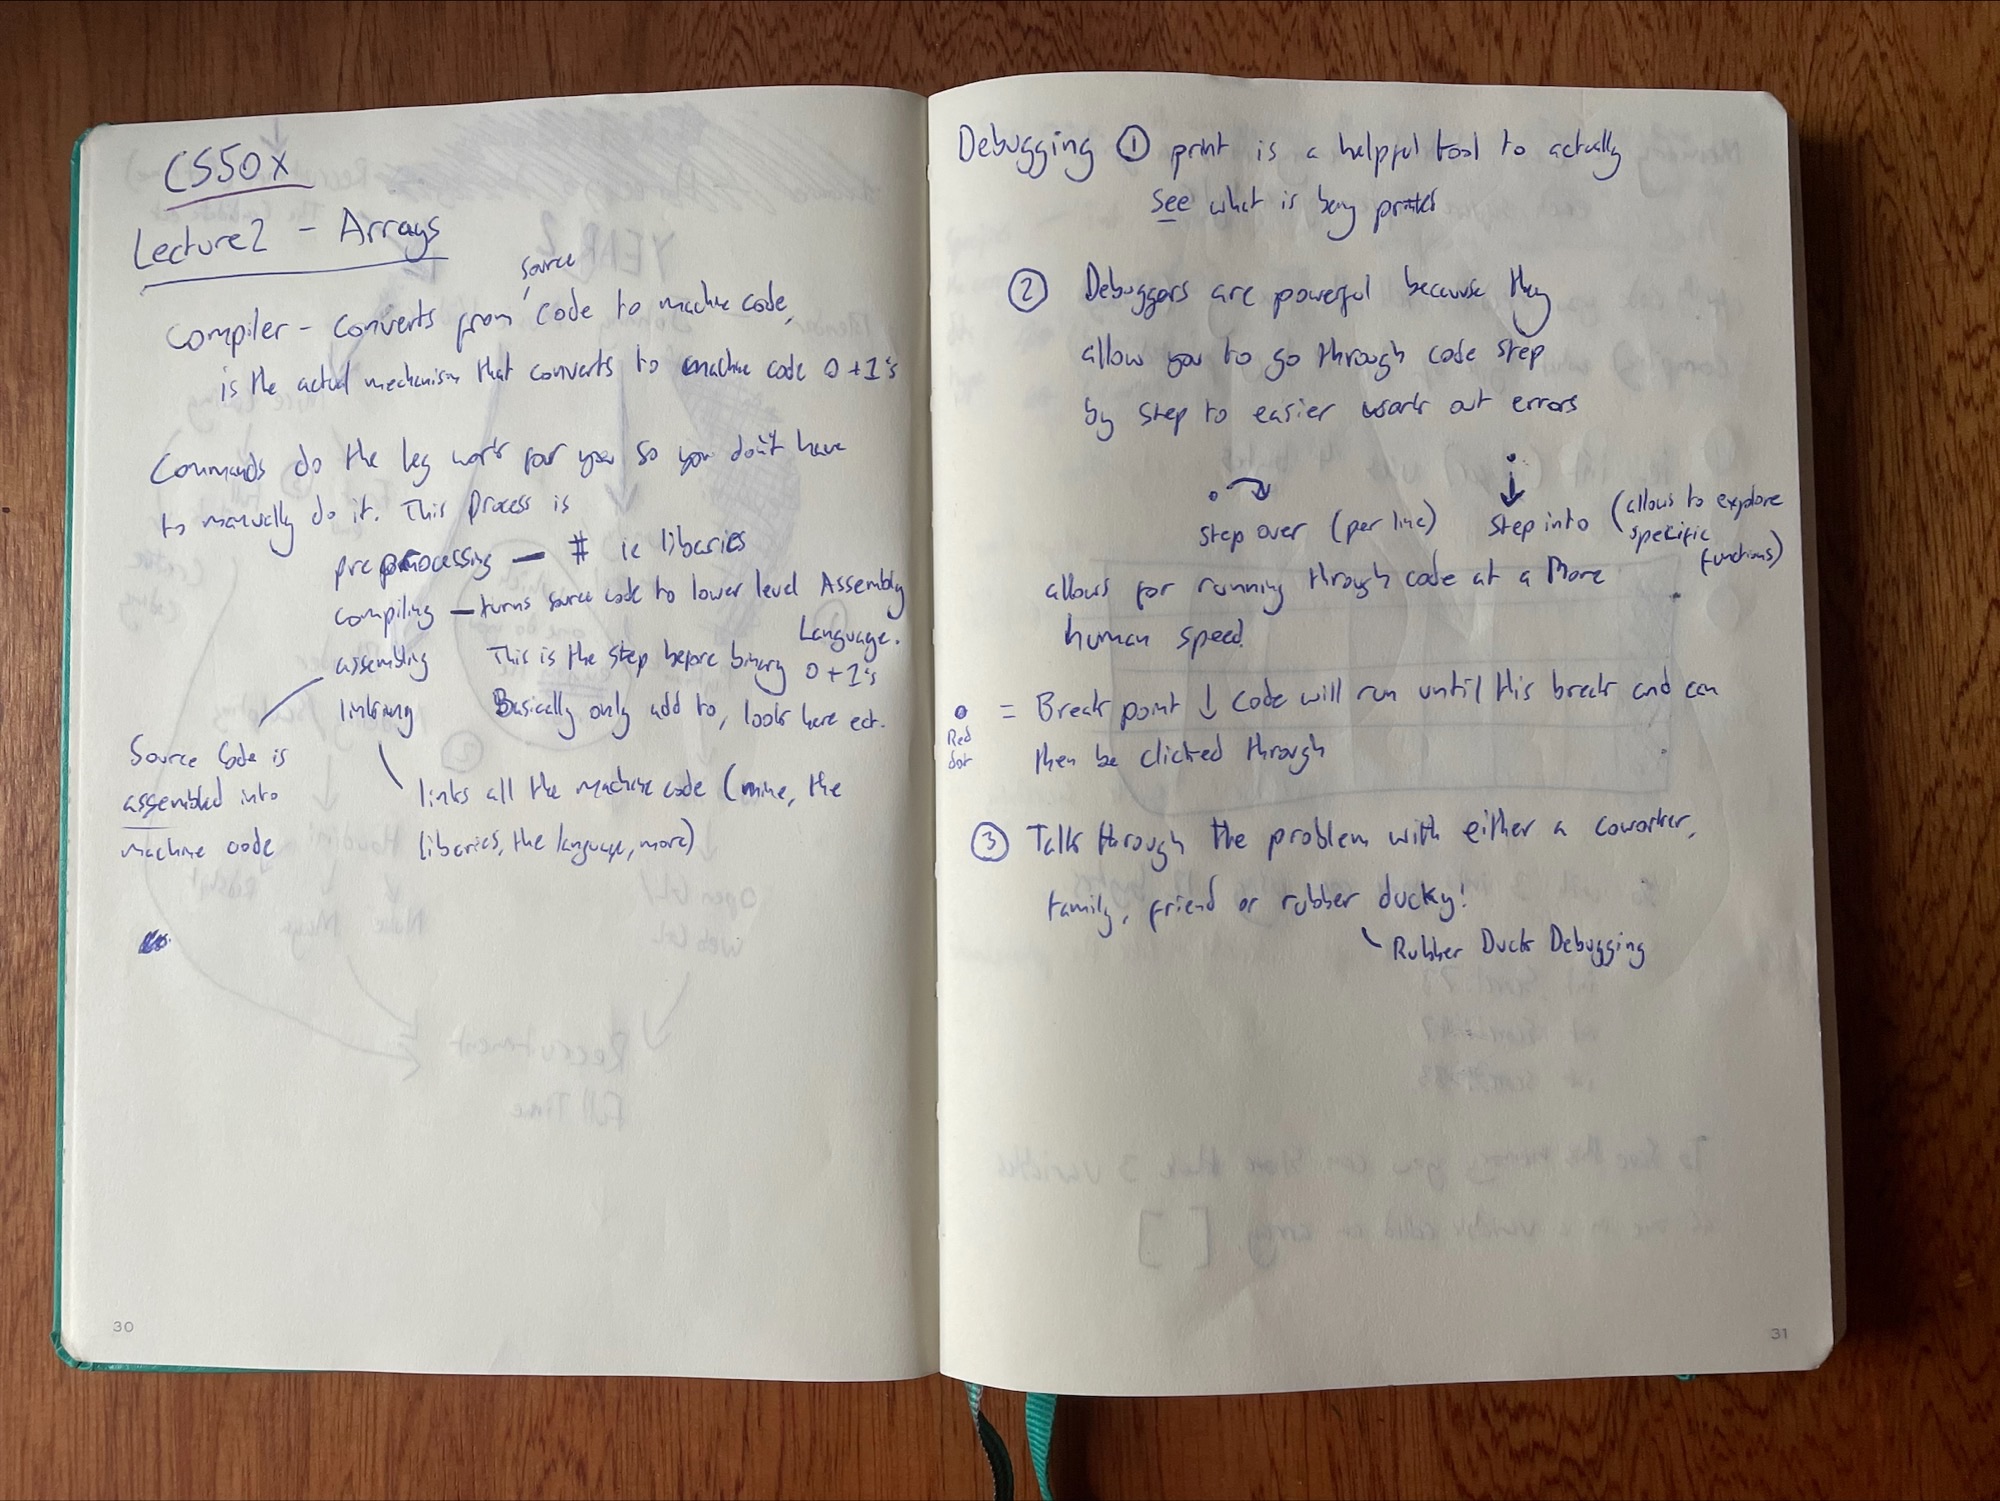 CS50x
Lecture 2 - Arrays
source
Compiler - converts from code to machine code,
is the actual mechanism that converts to machine code 0 + 1's
Commands do the leg work for you so you don't have
to manually do it. This process is
preprocessing — # ie libaries
compiling — turns source code to lower level Assembly
Language.
assembling This is the step before binary 0 + 1's
linking Basically only add to, look here ect.
Source Code is
assembled into
machine code
links all the machine code (mine, the
libaries, the language, more)
30
Debugging ① print is a helpful tool to actually
see what is being printed
② Debuggers are powerful because they
allow you to go through code step
by step to easier work out errors
step over (per line) step into (allows to explore
specific
functions)
allows for running through code at a More
human speed.
Red
dot
= Break point ↓ code will run until this break and can
then be clicked through
③ Talk through the problem with either a coworker,
family, friend or rubber ducky!
Rubber Duck Debugging
31